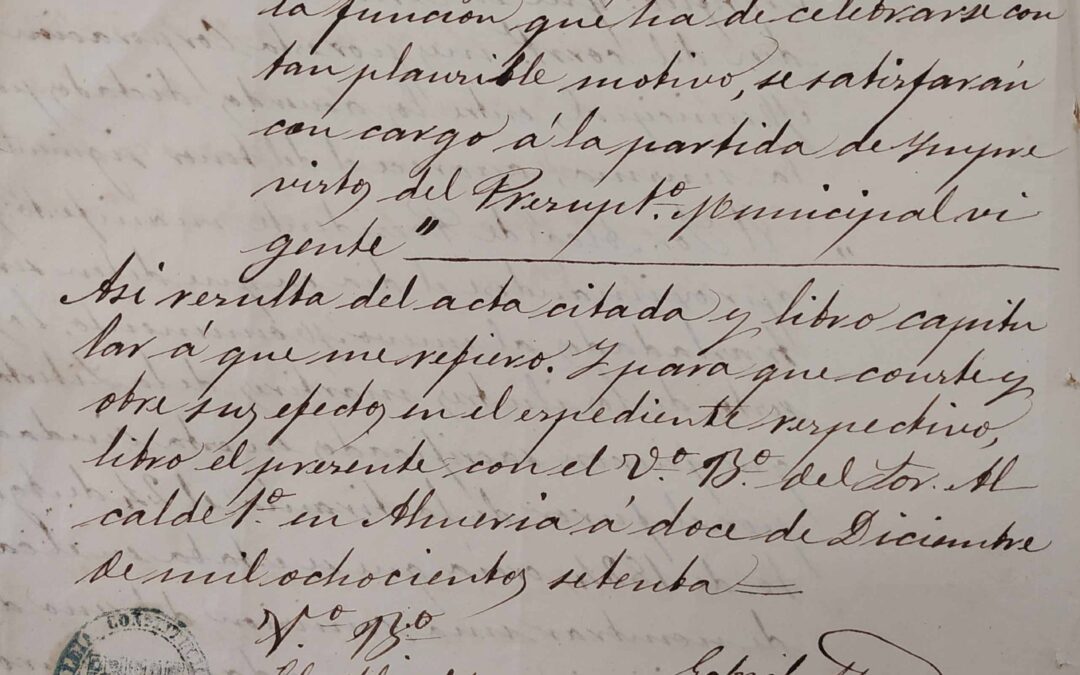 la función que ha de celebrarse con
tan plausible motivo, se satisfarán
con cargo á la partida de Ympre
vistos del Presupto. Municipal vi
gente"
Asi resulta del acta citada y libro capitu
lar á que me refiero. Y para que conste y
obre sus efectos en el espediente respectivo,
libro el presente con el Vo. Bo. del Sor. Al
calde 1o. en Almeria á doce de Diciembre
de mil ochocientos setenta=
Vo Bo